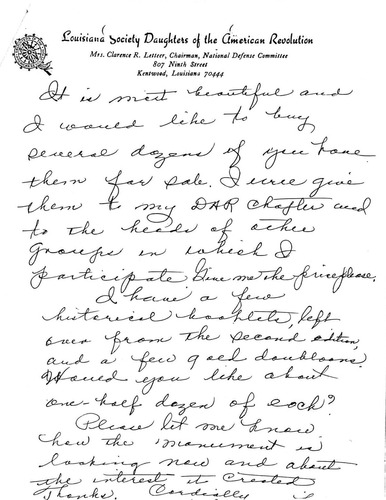 Louisiana Society Daughters of the American Revolution
Mrs. Clarence R. Letteer, Chairman, National Defense Committee
807 Ninth Street
Kentwood, Louisiana 70444
It is most beautiful and
I would like to buy
several dozens if you have
them for sale. I will give
them to my DAR Chapter and
to the heads of other
groups in which I
participate. Give me the price please.
I have a few
historical booklets, left
over from the second edition,
and a few gold doubloons.
Would you like about
one-half dozen of each?
Please let me know
how the monument is
looking now and about
the interest it created
Thanks. Cordially